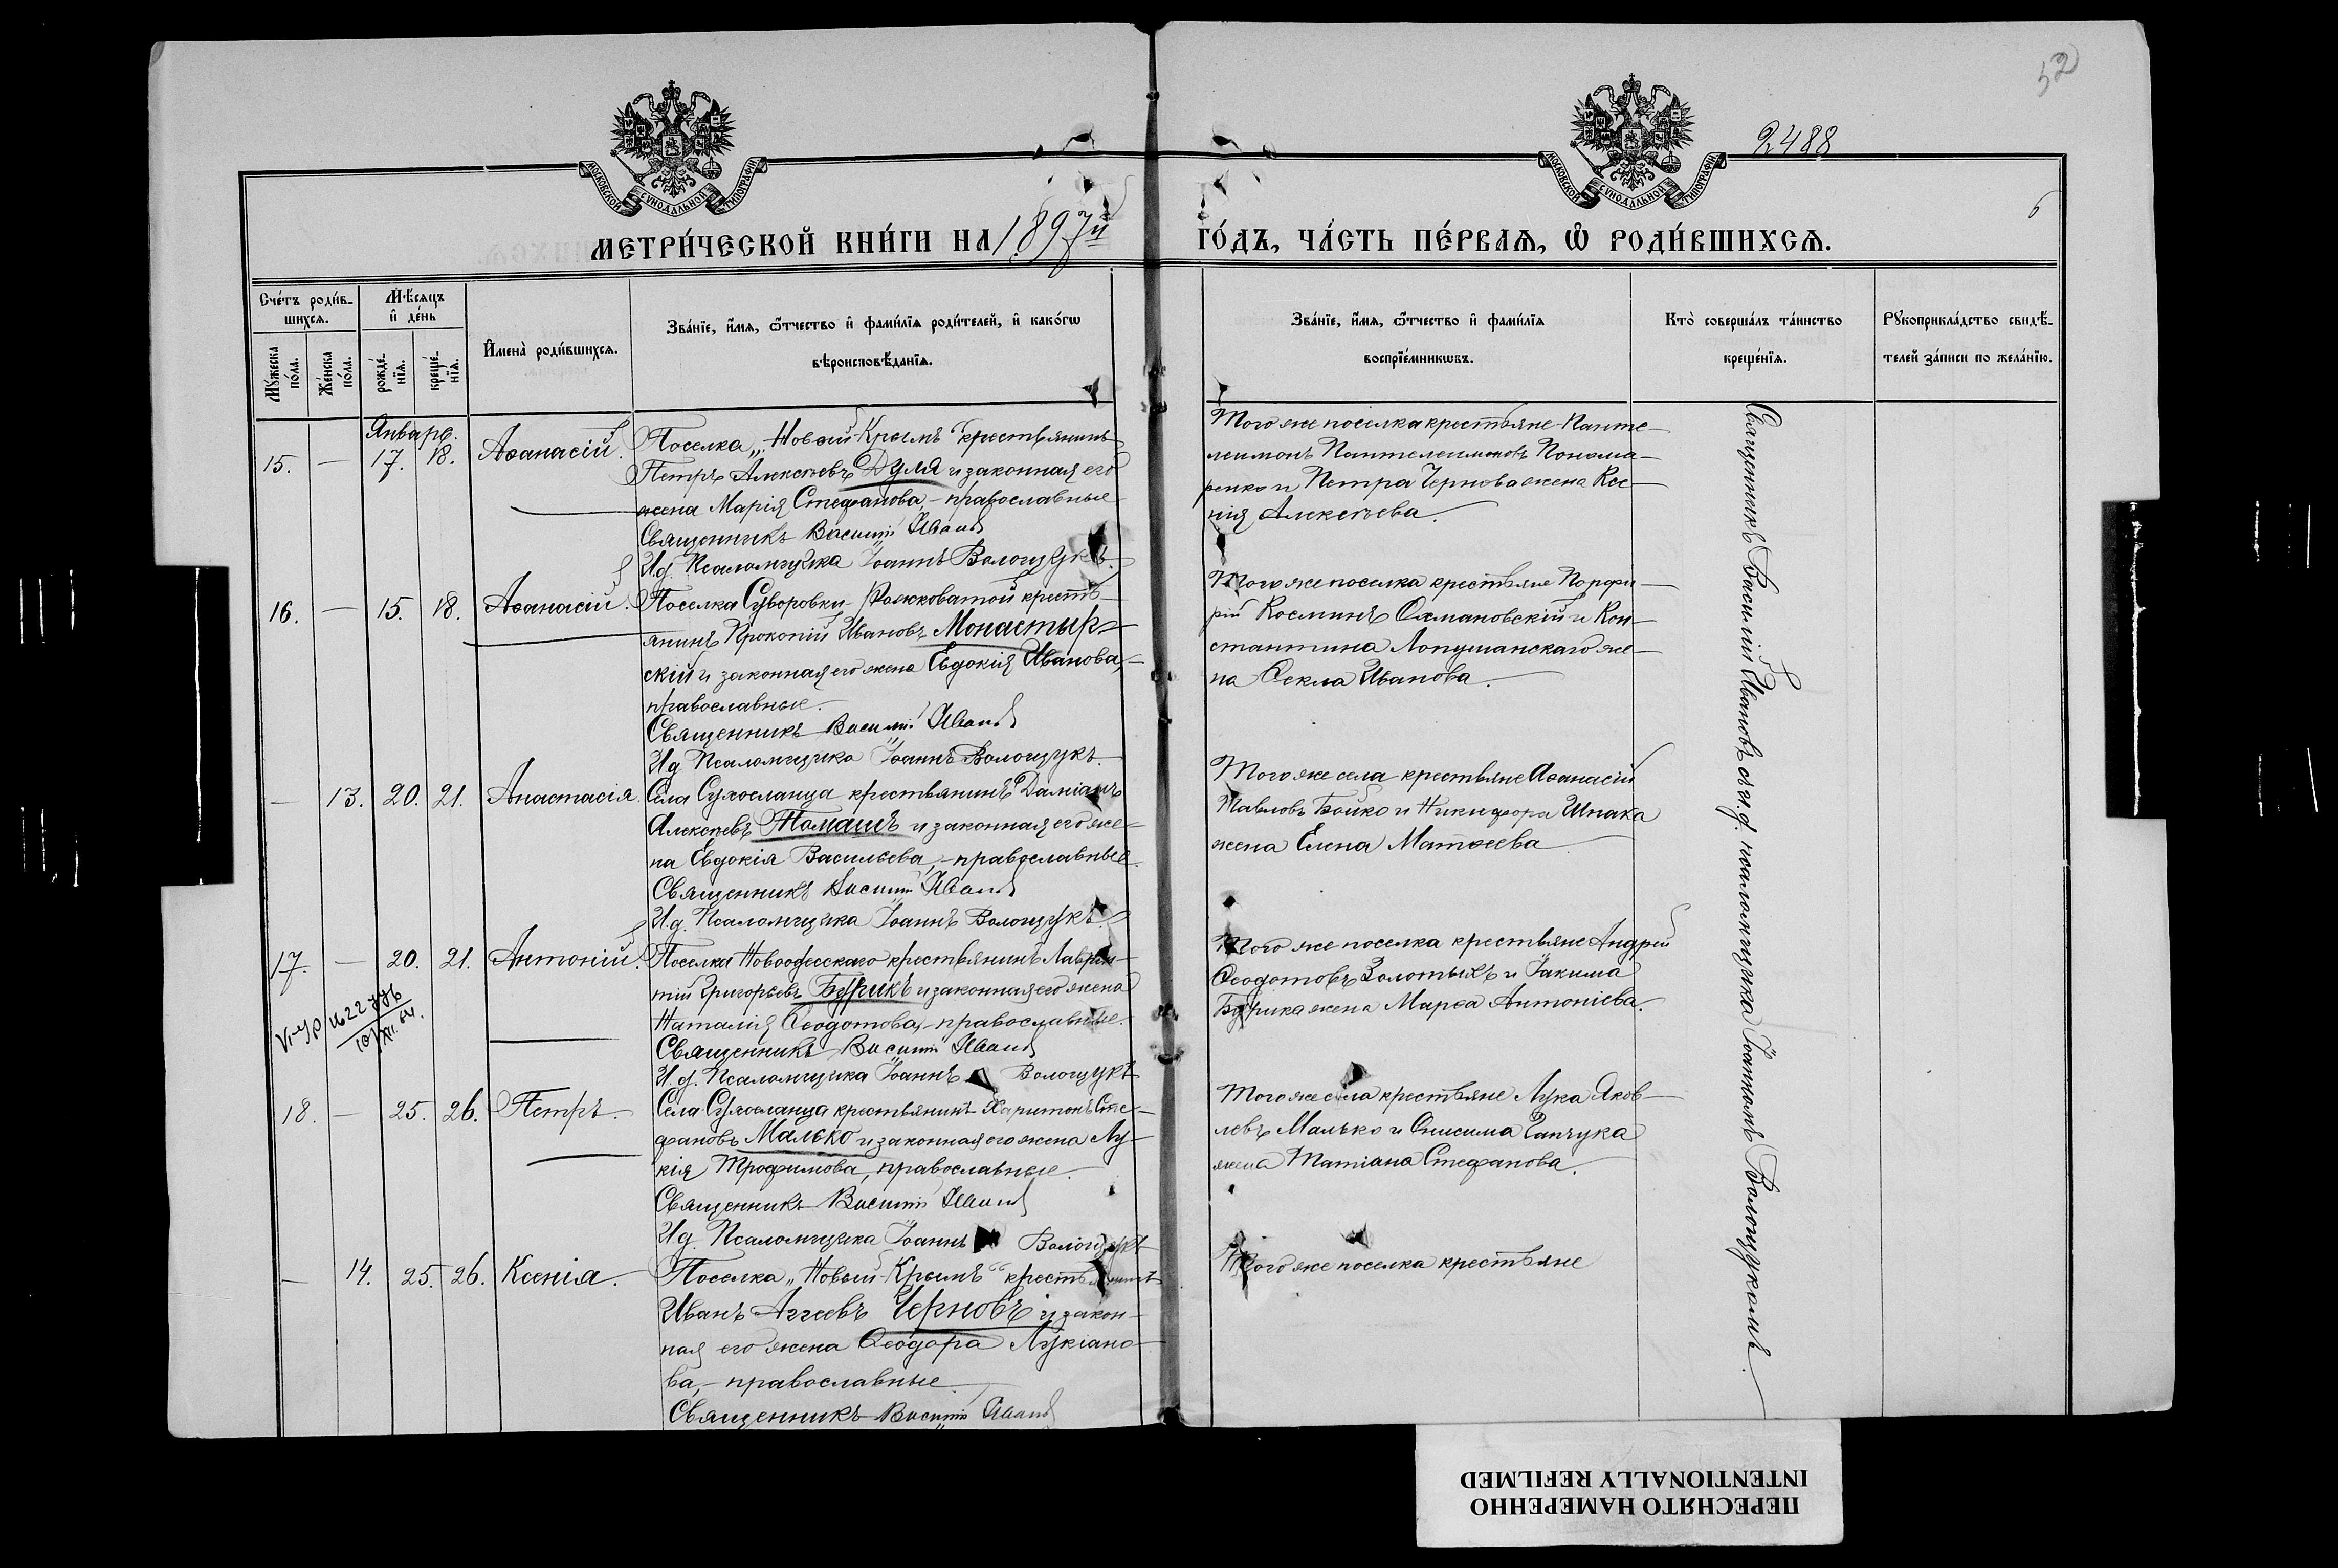 52
2488
6
МОСКОВСКОЙ СУНОДАЛЬНОЙ ТИПОГРАФІИ
МОСКОВСКОЙ СУНОДАЛЬНОЙ ТИПОГРАФІИ
МЕТРИ́ЧЕСКОЙ КНИ́ГИ НА 1897й ГО́ДЪ, ЧА́СТЬ ПЕ́РВАѦ, Ѡ҆ РОДИ́ВШИХСѦ.
Сче́тъ роди́в-
шихсѧ.
Мꙋ́жеска по́ла.
Же́нска по́ла.
Мѣ́сѧцъ
и҆ де́нь
рожде́-
нїѧ.
креще́-
нїѧ.
И҆мена̀ роди́вшихсѧ.
Зва́нїе, и҆́мѧ, ѻ҆́тчество и҆ фами́лїѧ роди́телей, и҆ како́гѡ
вѣроисповѣ́данїѧ.
Зва́нїе, и҆́мѧ, ѻ҆́тчество и҆ фами́лїѧ
воспрїе́мникѡвъ.
Кто̀ соверша́лъ та́инство
креще́нїѧ.
Рꙋкоприкла́дство свидѣ́-
телей за́писи по жела́нїю.
Январь.
15. — 17. 18. Аѳанасій.
Поселка „Новый-Крымъ" крестьянинъ
Петръ Алексѣевъ Дуля и законная его
жена Марія Стефанова, – православные
Священникъ Василій Иванов
Ид. Псаломщика Іоаннъ Волощукъ.
Того же поселка крестьяне Панте-
леимонъ Пантелеимоновъ Понома-
ренко и Петра Чернова жена Ксе-
нія Алексѣева.
16. — 15. 18. Аѳанасій.
Поселка Суворовки-Рожковатой кресть-
янинъ Прокопій Ивановъ Монастыр-
скій и законная его жена Евдокія Иванова,
православные.
Священникъ Василій Иванов
Ид Псаломщика Іоаннъ Волощукъ.
Того же поселка крестьяне Порфи-
рій Косминъ Охмановскій и Кон-
стантина Лопушанскаго же-
на Ѳекла Иванова.
— 13. 20. 21. Анастасія.
Села Сухоеланца крестьянинъ Даміанъ
Алексѣевъ Томашъ и законная его же-
на Евдокія Васильева, – православные.
Священникъ Василій Иванов
Ид. Псаломщика Іоаннъ Волощукъ.
Того же села крестьяне Аѳанасій
Павловъ Бойко и Никифора Шпака
жена Елена Матѳеева
17. — 20. 21. Антоній.
Поселка Новоодесскаго крестьянинъ Лаврен-
тій Григорьевъ Бурикъ и законная его жена
Наталія Ѳеодотова, – православные.
Священникъ Василій Иванов
И.д. Псаломщика Іоаннъ Волощукъ
Того же поселка крестьяне Андрей
Ѳеодотовъ Золотыхъ и Іакима
Бурика жена Марѳа Антоніева.
18. — 25. 26. Петръ.
Села Сухоеланца крестьянинъ Харитонъ Сте-
фановъ Малько и законная его жена Лу-
кія Трофимова, православные.
Священникъ Василій Иванов
Ид. Псаломщика Іоаннъ Волощукъ
Того же села крестьяне Лука Яков-
левъ Малько и Онисима Ганчука
жена Татіана Стефанова.
— 14. 25. 26. Ксенія.
Поселка „Новый-Крымъ" крестьянинъ
Иванъ Аггеевъ Черновъ и закон-
ная его жена Ѳеодора Лукіано-
ва, – православные.
Священникъ Василій Иванов
Того же поселка крестьяне
Священникъ Василій Ивановъ съ и.д. псаломщика Іоанномъ Волощукомъ.
ПЕРЕСНЯТО НАМЕРЕННО
INTENTIONALLY REFILMED